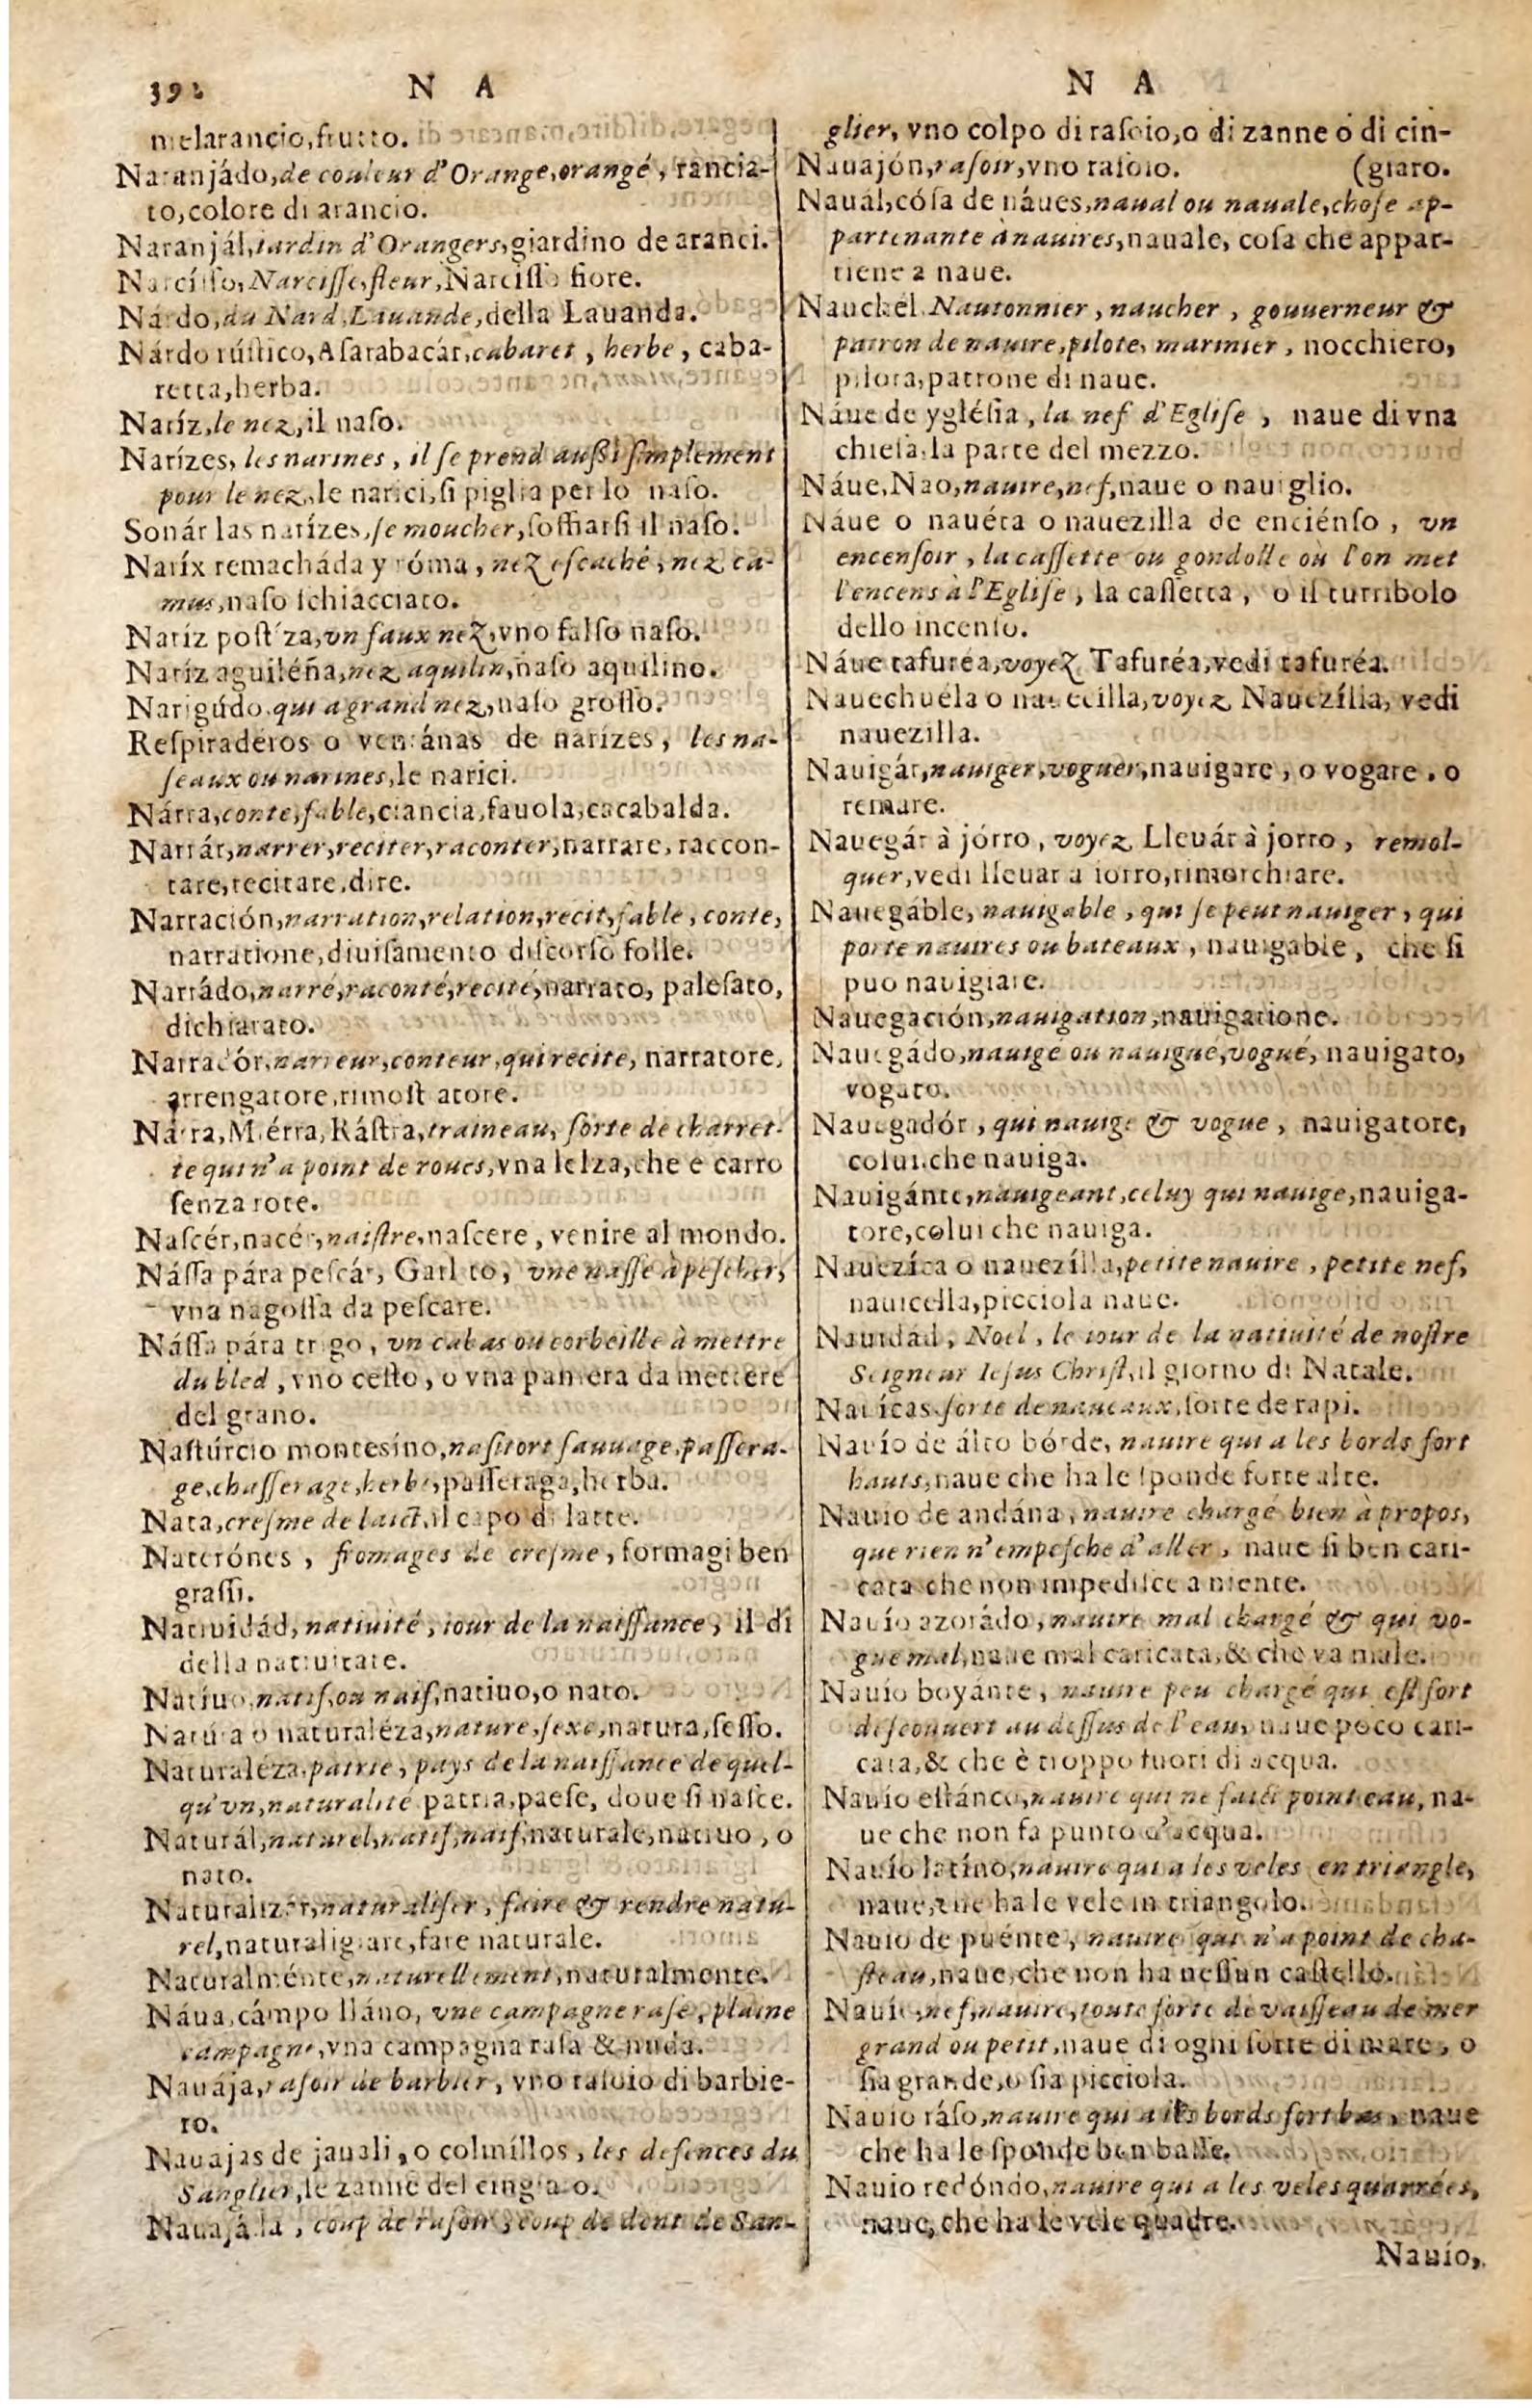 392 N A
melarancio,frutto.
Naranjádo,de couleur d'Orange,orangé, rancia-
to,colore di arancio.
Naranjál,iardin d'Orangers,giardino de aranci.
Narcísso,Narcisse,fleur,Narcisso fiore.
Nárdo,du Nard,Lauande,della Lauanda.
Nárdo rústico,Asarabacár,cabaret, herbe, caba-
retta,herba.
Naríz,le nez,il naso.
Narízes, les narines, il se prend aussi simplement
pour le nez,le narici,si piglia per lo naso.
Sonár las narízes,se moucher,soffiarsi il naso.
Naríx remacháda y róma, nez escaché, nez ca-
mus,naso schiacciato.
Naríz postíza,vn faux nez,vno falso naso.
Naríz aguiléña,nez aquilin,naso aquilino.
Narigúdo,qui a grand nez,naso grosso.
Respiraderos o ventánas de narízes, les na-
seaux ou narines,le narici.
Nárra,conte,fable,ciancia,fauola,cacabalda.
Narrár,narrer,reciter,raconter,narrare, raccon-
tare,recitare,dire.
Narración,narration,relation,recit,fable, conte,
narratione,diuisamento discorso folle.
Narrádo,narré,raconté,recité,narrato, palesato,
dichiarato.
Narradór,narreur,conteur,qui recite, narratore,
arrengatore,rimost atore.
Nárra, Miérra, Rástra,traineau, sorte de charret-
te qui n'a point de roues,vna lelza,che e carro
senza rote.
Nascér,nacér,naistre,nascere, venire al mondo.
Nássa pára pescár, Garlito, vne nasse à pescher,
vna nagossa da pescare.
Nássa pára trigo, vn cabas ou corbeille à mettre
du bled, vno cesto, o vna paniera da mettere
del grano.
Nastúrcio montesino,nasitort sauuage,passera-
ge,chasserage,herbe,passeraga,herba.
Nata,cresme de laict,il capo di latte.
Naterónes, fromages de cresme, formagi ben
grassi.
Natiuidád, natiuité, iour de la naissance, il di
della natiuitate.
Natíuo,natif,ou naif,natiuo,o nato.
Natúra o naturaléza,nature,sexe,natura,sesso.
Naturaléza,patrie, pays de la naissance de quel-
qu'vn,naturalité patria,paese, doue si nasce.
Naturál,naturel,natif,naif,naturale,natiuo, o
nato.
Naturalizár,naturaliser, faire & rendre natu-
rel,naturaligiare,fare naturale.
Naturalménte,naturellement,naturalmente.
Náua,cámpo lláno, vne campagne rase, plaine
campagne,vna campagna rasa & nuda.
Nauája,rasoir de barbier, vno rasoio di barbie-
ro.
Nauajas de jauali, o colmíllos, les defences du
Sanglier,le zanne del cingiaro.
Nauajáda, coup de rasoir, coup de dent de San-
N A
glier, vno colpo di rasoio,o di zanne o di cin-
Nauajón,rasoir,vno rasoio. (giaro.
Nauál,cósa de náues,naual ou nauale,chose ap-
partenante à nauires,nauale, cosa che appar-
tiene a naue.
Nauchél,Nautonnier, naucher, gouuerneur &
patron de nauire,pilote, marinier, nocchiero,
pilota,patrone di naue.
Náue de yglésia, la nef d'Eglise, naue di vna
chiesa,la parte del mezzo.
Náue,Nao,nauire,nef,naue o nauiglio.
Náue o nauéta o nauezilla de enciénso, vn
encensoir, la cassette ou gondolle où l'on met
l'encens à l'Eglise, la cassetta, o il turribolo
dello incenso.
Náue tafuréa,voyez Tafuréa,vedi tafuréa.
Nauechuéla o nauecilla,voyez Nauezílla, vedi
nauezilla.
Nauigár,nauiger,voguer,nauigare, o vogare, o
remare.
Nauegár à jórro, voyez Lleuár à jorro, remol-
quer,vedi lleuar a iorro,rimorchiare.
Nauegáble, nauigable, qui se peut nauiger, qui
porte nauires ou bateaux, nauigable, che si
puo nauigiare.
Nauegación,nauigation,nauigatione.
Nauegádo,nauigé ou nauigué,vogué, nauigato,
vogato.
Nauegadór, qui nauige & vogue, nauigatore,
colui,che nauiga.
Nauigánte,nauigeant,celuy qui nauige,nauiga-
tore,colui che nauiga.
Nauezíca o nauezílla,petite nauire, petite nef,
nauicella,picciola naue.
Nauidád, Noel, le iour de la natiuité de nostre
Seigneur Iesus Christ,il giorno di Natale.
Nauícas,sorte de naueaux,sorte de rapi.
Nauío de álto bórde, nauire qui a les bords fort
hauts,naue che ha le sponde forte alte.
Nauio de andána, nauire chargé bien à propos,
que rien n'empesche d'aller, naue si ben cari-
cata che non impedisce a niente.
Nauío azorádo, nauire mal chargé & qui vo-
gue mal,naue mal caricata,& che va male.
Nauío boyánte, nauire peu chargé qui est fort
descouuert au dessus de l'eau, naue poco cari-
cata,& che è troppo fuori di acqua.
Nauío estánco,nauire qui ne faict point eau, na-
ue che non fa punto d'acqua.
Nauío latíno,nauire qui a les veles en triangle,
naue,che ha le vele in triangolo.
Nauio de puénte, nauire qui n'a point de cha-
steau,naue,che non ha nessun castello.
Nauío,nef,nauire,toute sorte de vaisseau de mer
grand ou petit,naue di ogni sorte di mare, o
sia grande,o sia picciola.
Nauio ráso,nauire qui a les bords fort bas, naue
che ha le sponde ben basse.
Nauio redóndo,nauire qui a les veles quarrées,
naue, che ha le vele quadre.
Nauío,